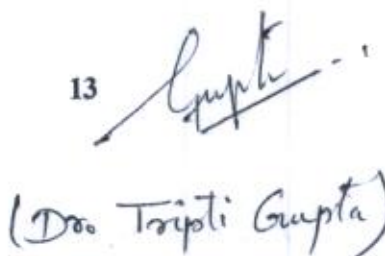 13 Gupta
(Dr. Tripti Gupta)